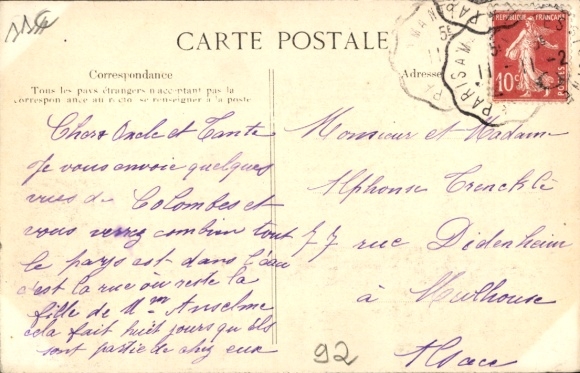 114
CARTE POSTALE
Correspondance
Tous les pays étrangers n'acceptant pas la
correspondance au recto, se renseigner à la poste
Adresse
RÉPUBLIQUE FRANÇAISE
10c
POSTES
PARIS A M
11
Chers Oncle et Tante
Je vous envoie quelques
vues de Colombes et
vous verrez combien tout
le pays est dans l'eau
c'est la rue où reste la
fille de Mme Anselme
cela fait huit jours qu'ils
sont partie de chez eux
Monsieur et Madame
Alphonse Trencklé
77 rue Didenheim
à Mulhouse
Alsace
92